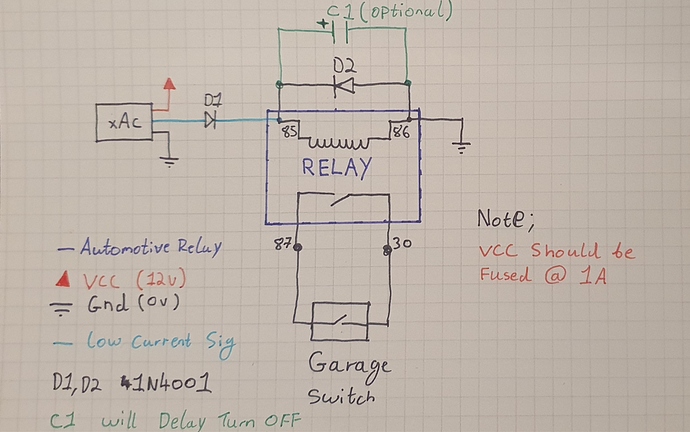 + C1 (optional)
D2
D1
xAc
85
86
RELAY
87
30
Note;
VCC Should be
Fused @ 1A
— Automotive Relay
VCC (12v)
Gnd (0v)
— low Current Sig
D1, D2 1N4001
C1 will Delay Turn OFF
Garage
Switch